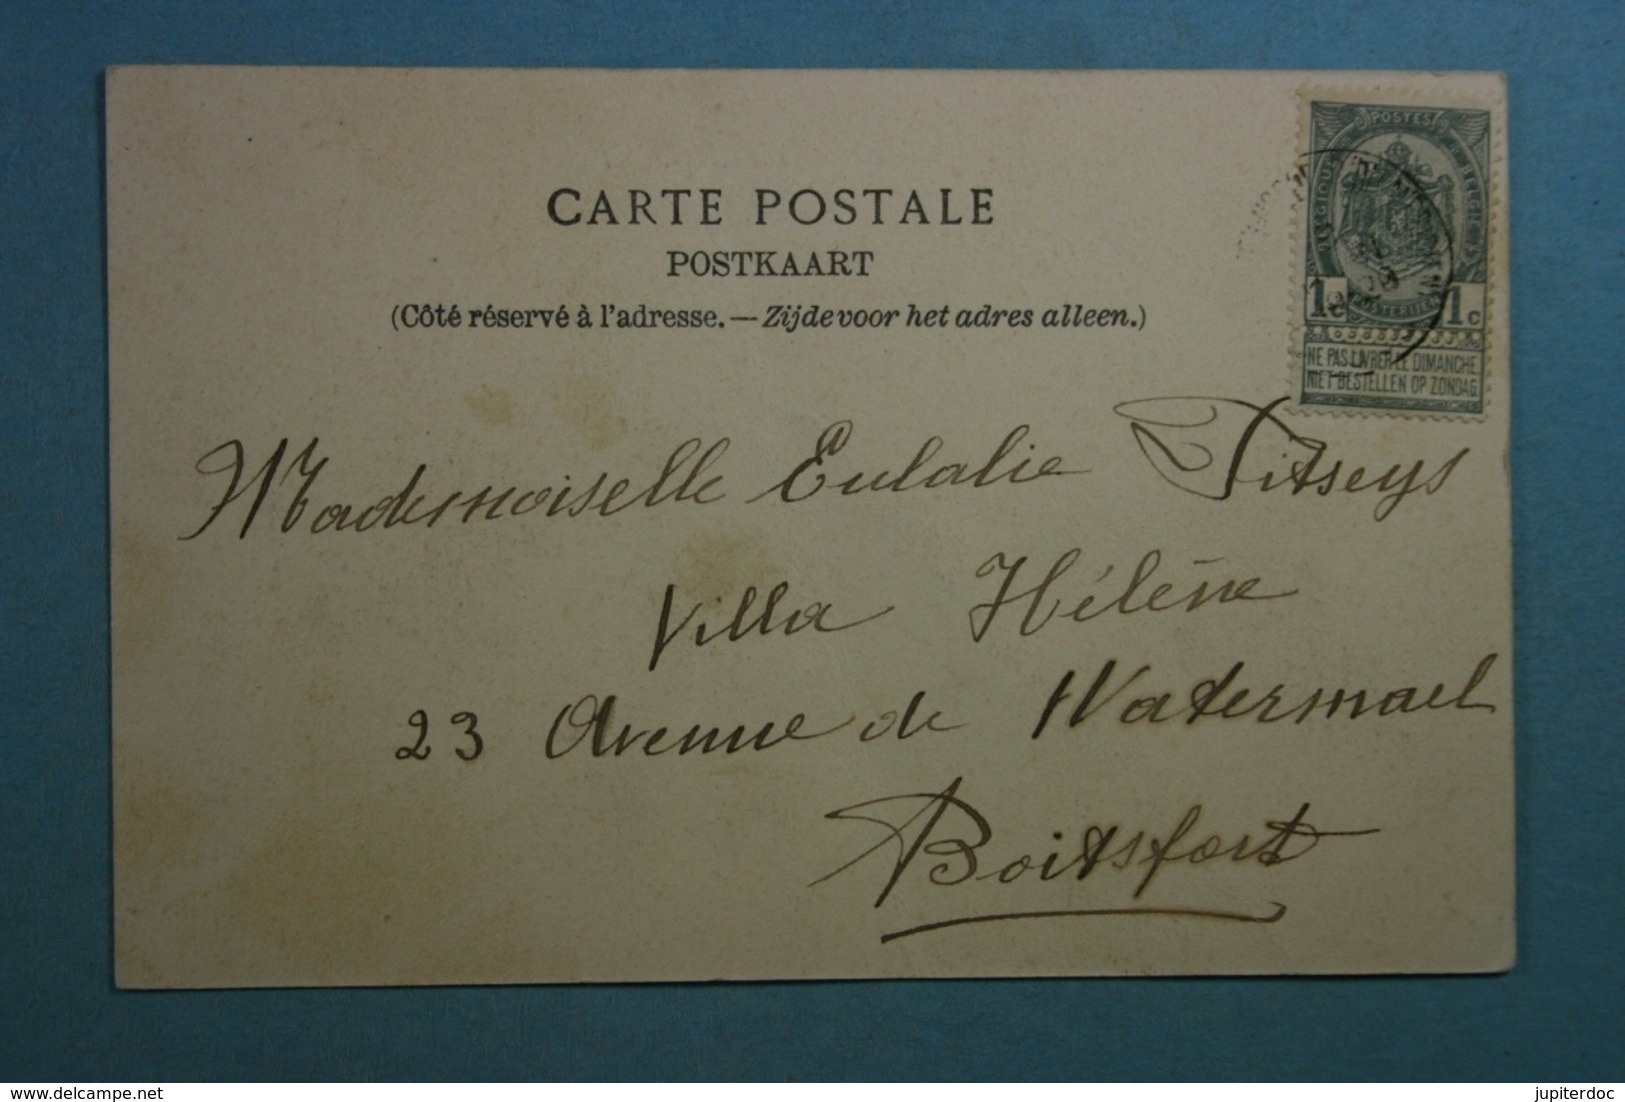 CARTE POSTALE
POSTKAART
(Côté réservé à l'adresse. — Zijde voor het adres alleen.)
POSTES
BELGIQUE
BELGIË
POSTERIJEN
1c 1c
NE PAS LIVRER LE DIMANCHE
NIET BESTELLEN OP ZONDAG
Mademoiselle Eulalie Titseys
Villa Hélène
23 Avenue de Watermael
Boitsfort
https://www.delcampe.net
jupiterdoc